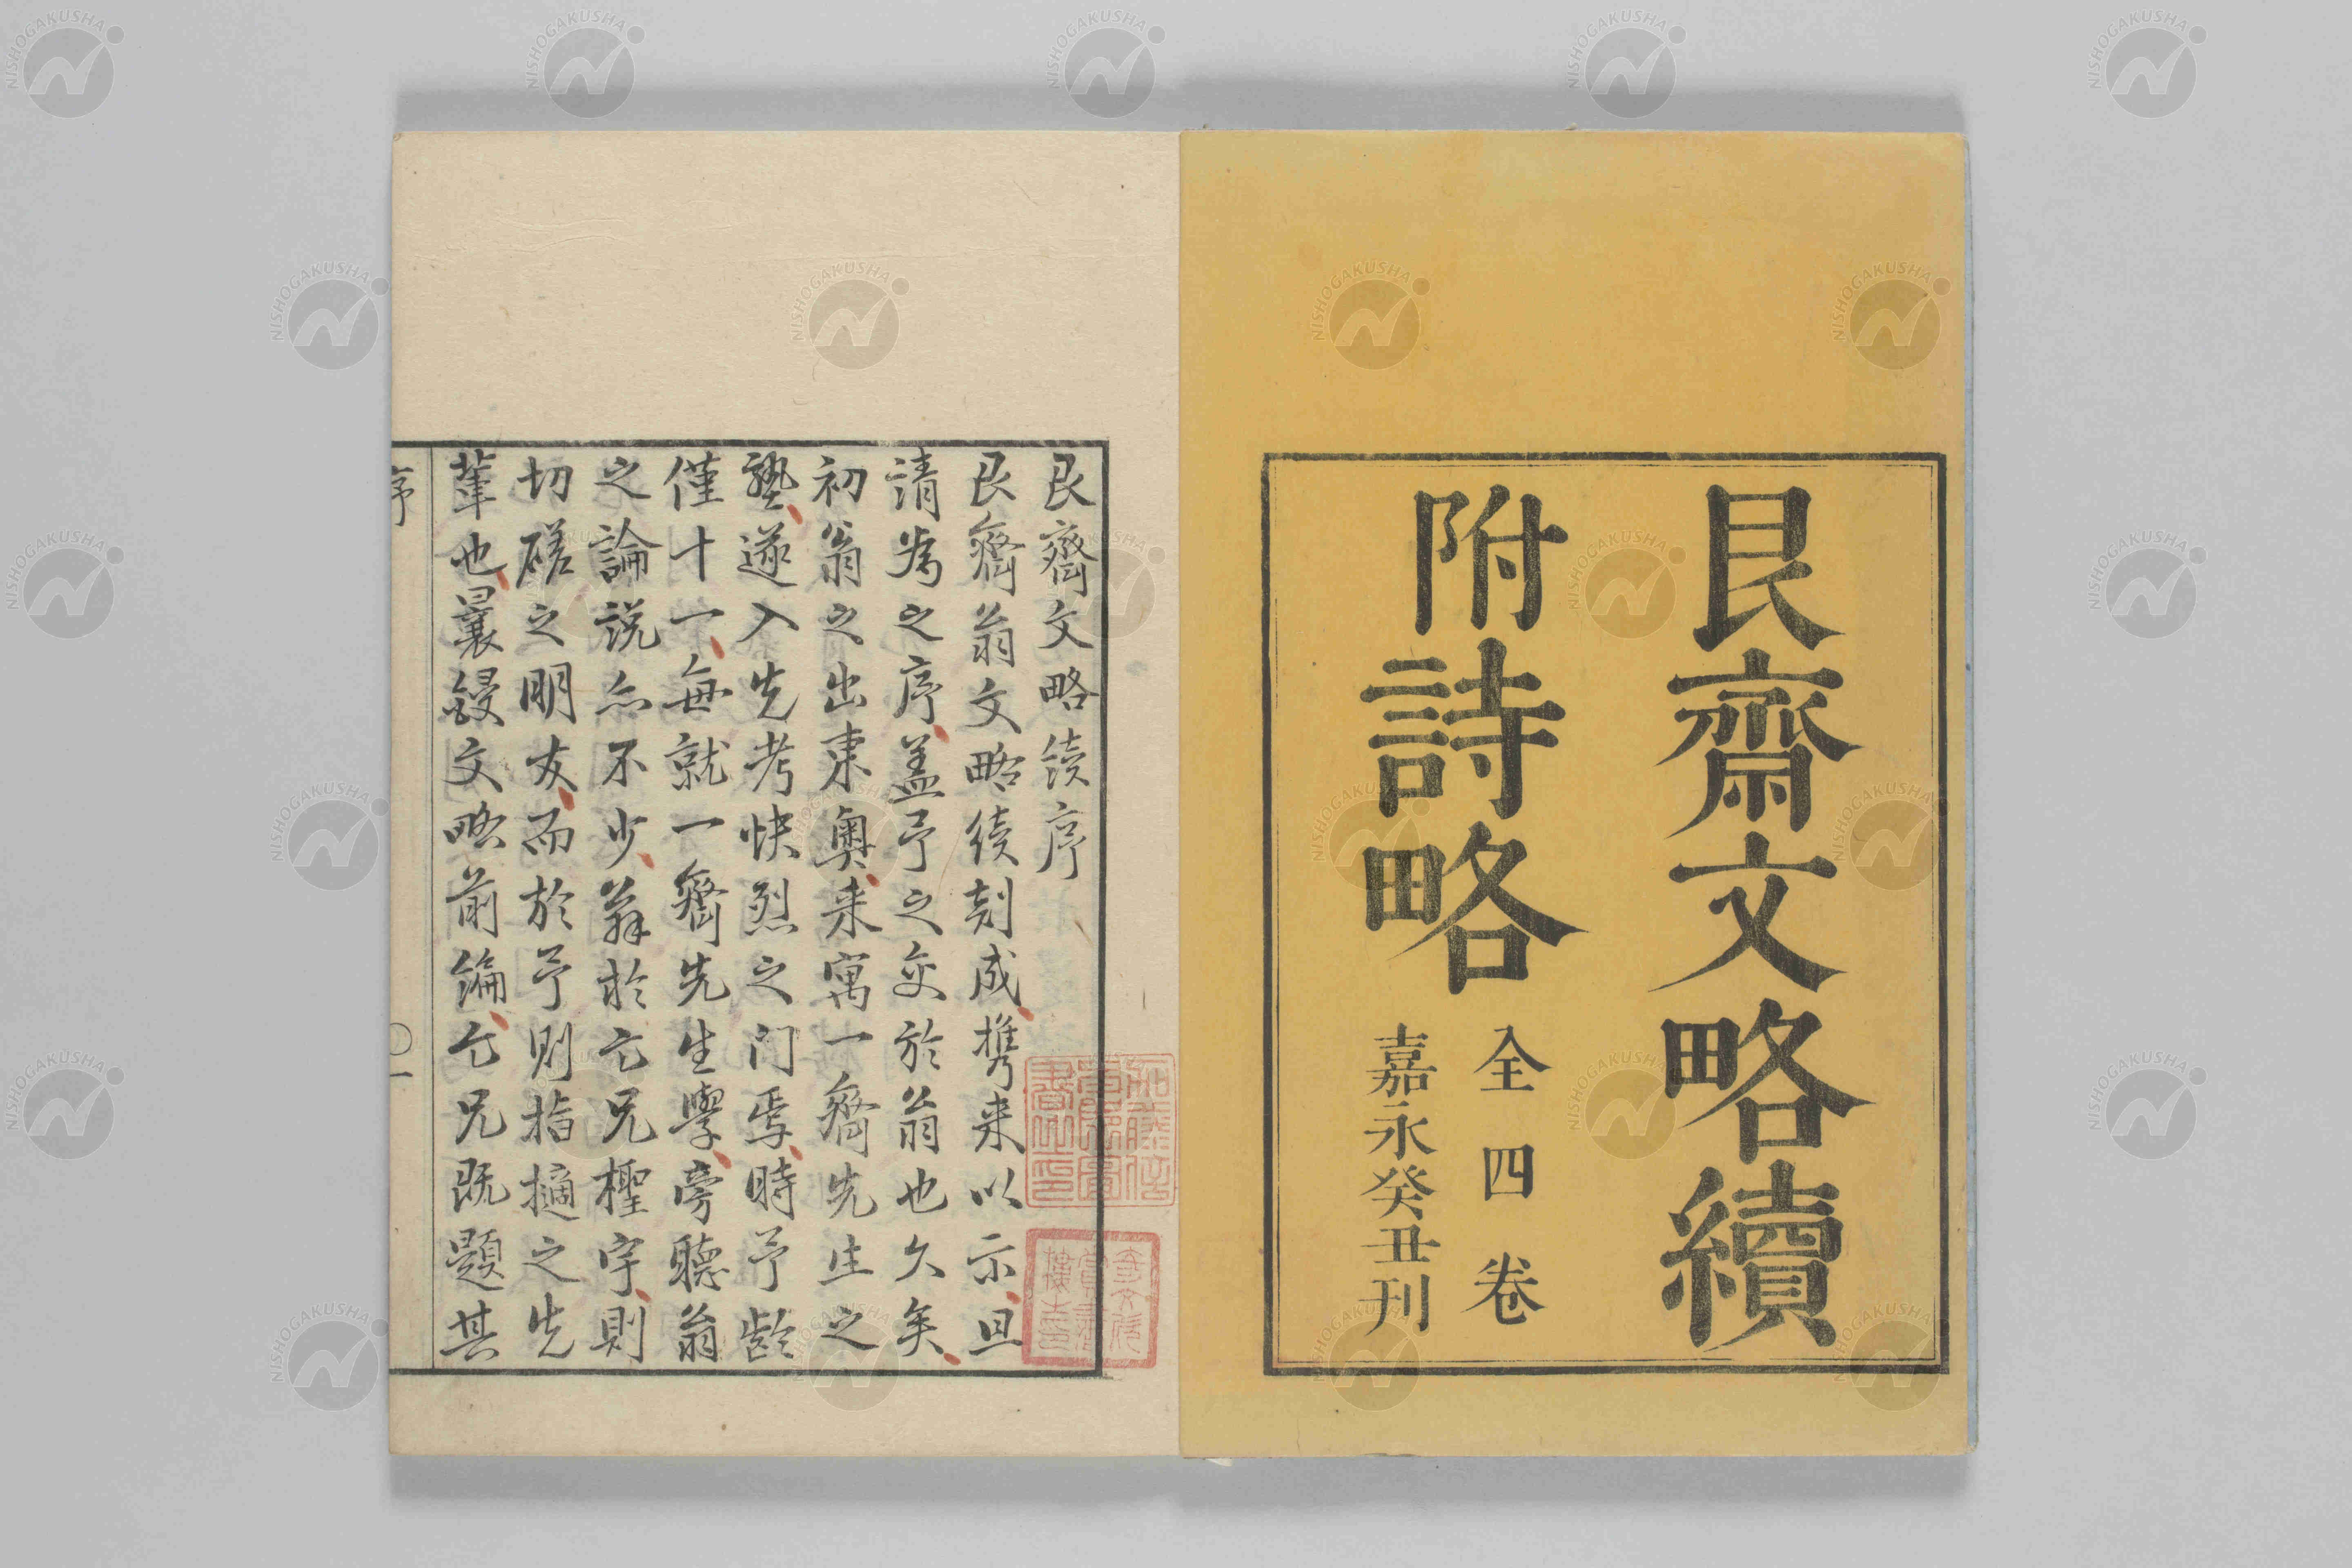 艮齋文略續
附詩略
全四卷
嘉永癸丑刊
艮齋文略續序
艮齋翁文略續刻成携来以示且
請為之序盖予之交於翁也久矣
初翁之出東奥来寓一齋先生之
塾遂入先考快烈之门焉時予齡
僅十一每就一齋先生學旁聽翁
之論説亦不少翁於亡兄檉宇則
切磋之朋友而於予則指擿之先
輩也曩鋟文略前編亡兄既題其
序
一
NISHOGAKUSHA